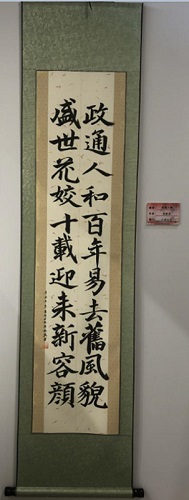 政通人和百年易去舊風貌
盛世花姣十載迎来新容顔